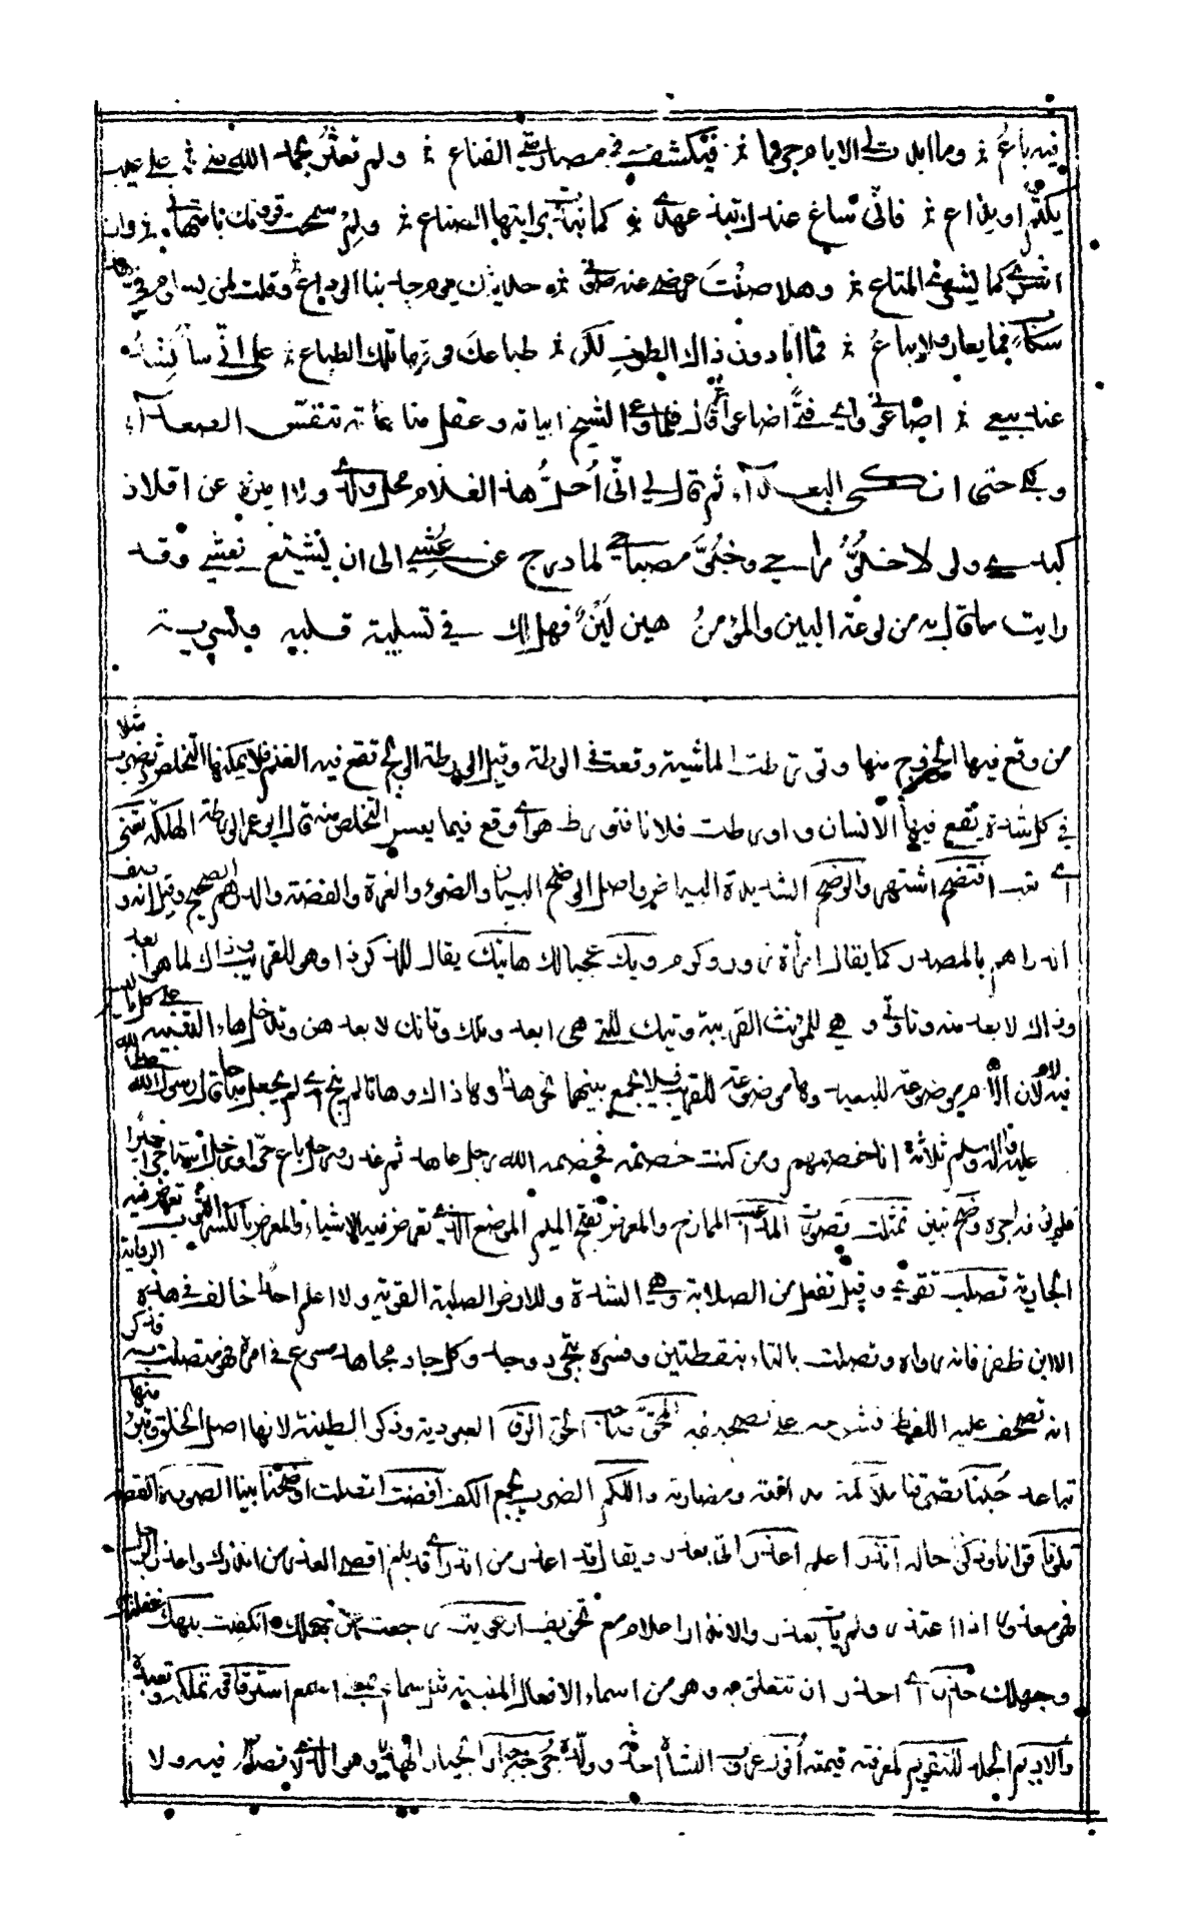 فيه باع ؛ وما ابدت لي الايام جرما ؛ فيكشف في مصارمتي القناع ؛ ولم تعثر بحمد الله مني ؛ على عيب
يكتم او يذاع ؛ فانى ساغ عندك نبذ عهدي ؛ كما نبذت برايتها الصناع ؛ ولم سمحت قرونك بامتهاني ؛ وان
اشرى كما يشرى المتاع ؛ وهلا صنت عرضي عنه صوني ؛ حديثك يوم جد بنا الوداع ؛ وقلت لمن يساوم في
سكاب فما يعار ولا يباع ؛ فما انا دون ذاك الطرف لكن ؛ طباعك فوقها تلك الطباع ؛ على اني سانشد
عند بيعي ؛ اضاعوني واي فتى اضاعوا قال فلما وعى الشيخ ابياته وعقل مناغاته تنفس الصعداء
وبكى حتى ابكى البعداء ثم قال لي اني احل هذا الغلام محل ولدي ولا اميزه عن افلاذ
كبدي ولولا خلو مراحي وخبو مصباحي لما درج عن عشي الى ان يشيع نعشي وقد
رايت ما نزل به من لوعة البين والمؤمن هين لين فهل لك في تسلية قلبه وتسرية
من وقع فيها الخروج منها وتورطت الماشية وقعت في الورطة وقيل الورطة الوحل تقع فيه الغنم فلا يمكنها التخلص وتضرب مثلا
في كل شدة تقع فيها الانسان واورطت فلانا فتورط هو اي وقع فيما يعسر التخلص منه قال ابو عمرو الورطة الهلكة
افتضح اشتهر والوضح الشديدة البياض واصل الوضح البياض والضوء والغرة والفضة والدرهم الصحيح وقيل انه وصف
الدراهم بالمصدر كما يقال امرأة زور وكرم ويك عجبا لك هاتيك يقال للمذكر ذا وهو للقريب وذاك لما هو ابعد
وذاك لا بعد منه وتا وتي وهي للمؤنث القريبة وتيك للتي هي ابعد وتلك وتانك لا بعد هن وتدخل هاء التنبيه على كل ما ليس
فيه لام لان اللام موضوعة للبعيد وها موضوعة للقريب فلا يجمع بينهما نحو هذا وهاذاك وهاتا لم يخر اي لم يجعل حاجا قال رسول الله صلى الله
عليه واله وسلم ثلاثة انا خصمهم ومن كنت خصمه فخصمه الله رجل عاهد ثم غدر ورجل باع حرا ورجل استاجر اجيرا
فلم يوفه اجره وضح تبين تمثلت تصورت المداعب الممازح والمعرض بفتح الميم الموضع الذي تعرض فيه الاشياء والمعرض بالكسر الثوب تعرض فيه
الجارية تصلب تقوى وقيل تفعل من الصلابة وهي الشدة وللارض الصلبة القوية ولا اعلم احدا خالف في هذه الرواية
الا ابن ظفر فانه رواه وتصلت بالتاء بنقطتين وفسره بتجرد وجد وكل جاد مجاهد مسرع في امره فهو متصلت فيه
انه تصحف عليه اللفظ فشرحه على تصحيفه المحق صاحب الحق الرق العبودية وذكر الطينة لانها اصل الخلق منها
تباعد حبلنا تضرقنا ملاكمة مدافعة ومضاربة واللكم الضرب بجمع الكف افضت اتصلت اوضحنا بينا الصورة القصة
تلونا قرانا وذكرنا حاله انذر اعلم اعذر اتى بعذر ويقال قد اعذر من انذر اي قد بلغ اقصى العذر من انذرك واعذر الرجل
فهو معذر اذا اعتذر ولم يأت بعذر والانذار اعلام مع تخويف ارعويت رجعت عن جهلك انكففت بلهك غفلتك
وجهلك حذار اي احذر ان تتعلق به وهو من اسماء الافعال المبنية مثل سماع بمعنى اسمع استرقاقه تملكه وتعبده
والاديم الجلد للتقويم لمعرفة قيمته أفرز عزل انشأه احدثه وولده جبار الجبار الهدر وهو الذي لا قصاص فيه ولا